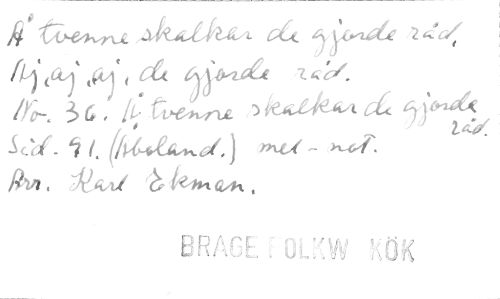 Å tvenne skalkar de gjorde råd,
Aj, aj, aj, de gjorde råd.
No. 36. Å tvenne skalkar de gjorde
råd.
Sid. 91. (Åboland.) mel-not.
Arr. Karl Ekman.
BRAGE FOLKW KÖK